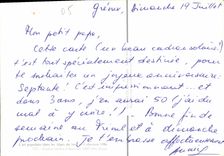 65
Gréoux, Dimanche 19 Juillet
Mon petit papa,
Cette carte (un beau cadran solaire)
t'est tout spécialement destinée, pour
te souhaiter un joyeux anniversaire.
Septante ! C'est impressionnant... et
dans 3 ans, j'en aurai 50 (j'ai du
mal à y croire !). Bonne fin de
semaine au et à dimanche
prochain. Je t'embrasse affectueusement